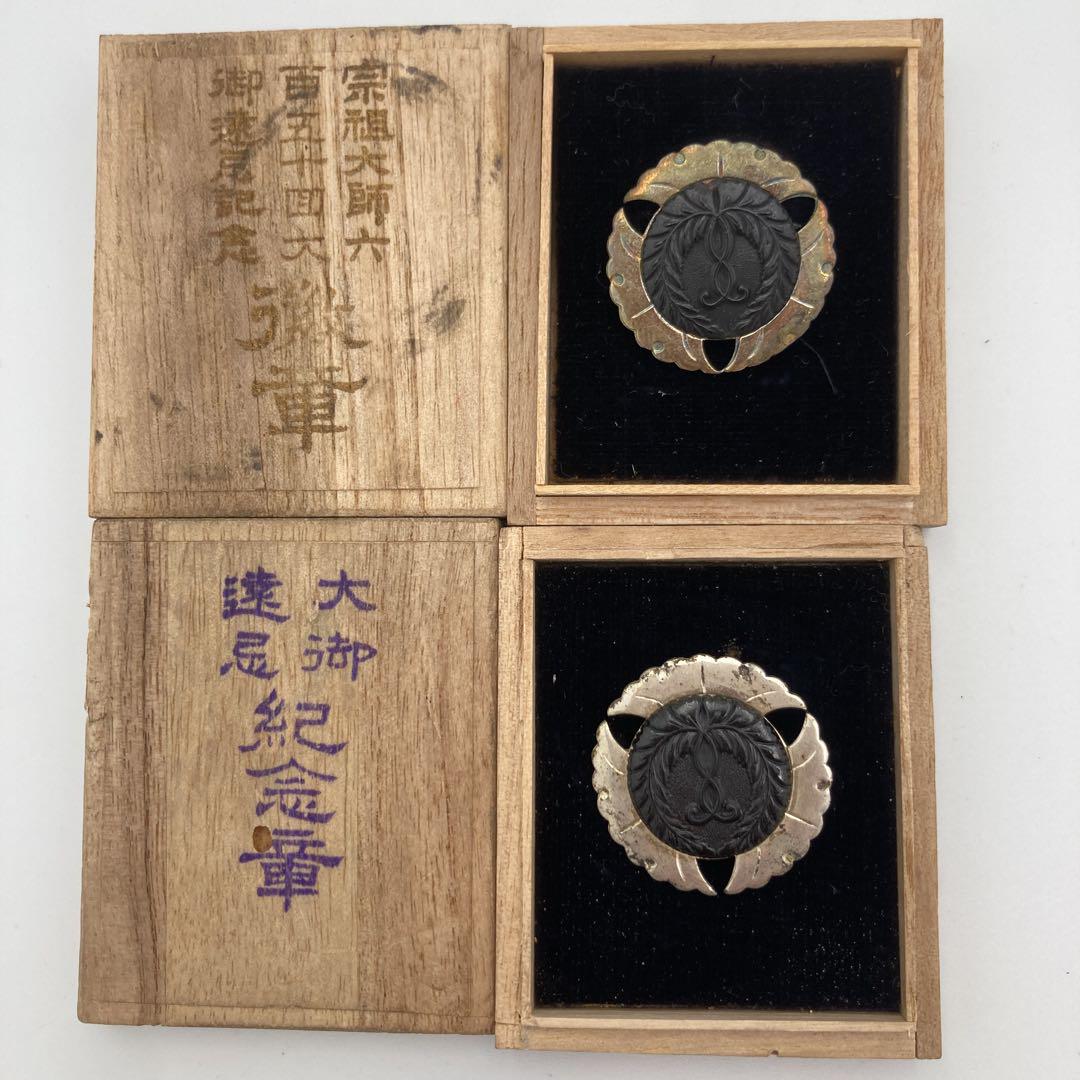 宗祖大師六
百五十回大
御遠忌記念
徽章
大御
遠忌
紀念章